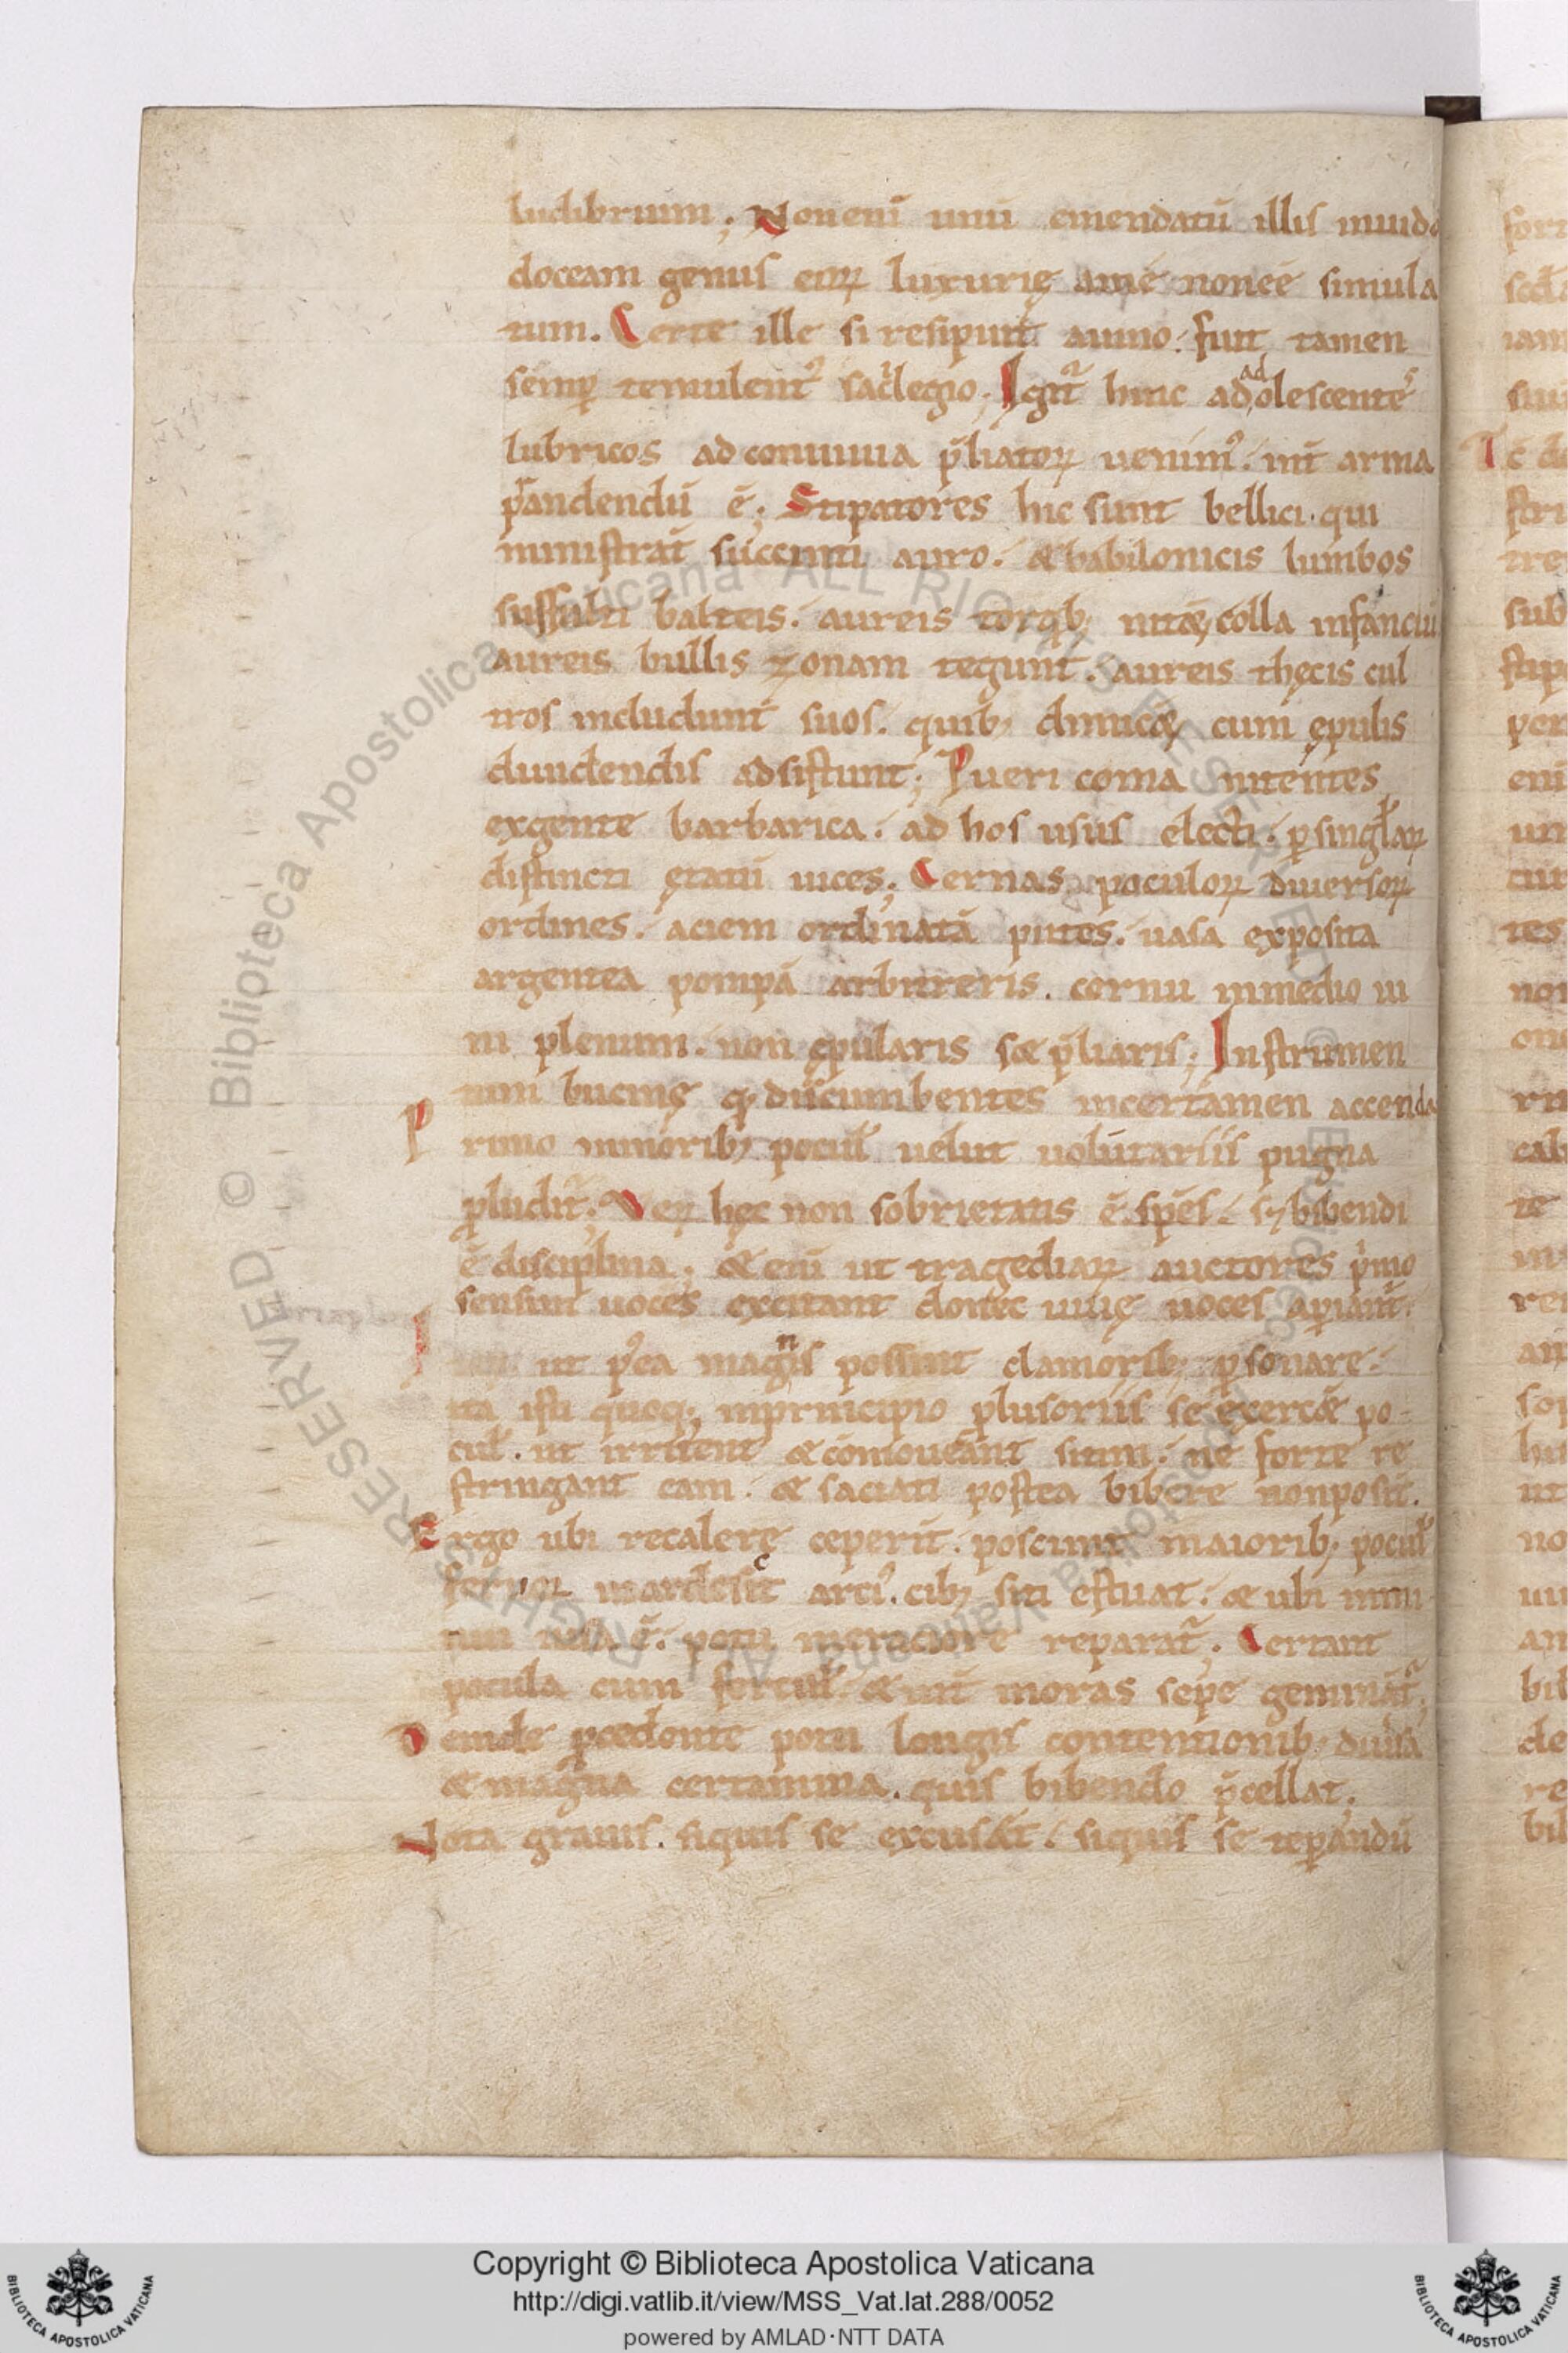 ludibrium; Non enī unū emendatū illis inuid
doceam genus eoꝝ luxurię amē non eē simula
tum. Certe ille si resipuit animo. fuit tamen
semꝑ temulentꝰ sacͥlegio; Igit᷑ hinc adolescenteˢ
ad
lubricos ad conuiuia p̄liatoꝝ uenimꝰ. int̄ arma
prandendū ē; Stipatores hic sunt bellici. qui
ministrant̄ succincti auro. & babilonicis lumbos
suffulti balteis. aureis torqͥb; nit&; colla infanciū
aureis bullis zonam tegunt. aureis thęcis cul
tros includunt suos. quib; dimic& cum ępulis
diuidendis adsistunt; Pueri coma nitentes
ex gente barbarica. ad hos usus electi. ꝑ singlaꝝ
distincti ętatū uices; Cernas poculoꝝ diuersoꝝ
ordines. aciem ordinatā putes. uasa exposita
argentea pompā arbitreris. cornu in medio ui
ni plenum. non ępularis s& p̄liaris; Instrumen
tum bucinę qͥ discumbentes in certamen accenda
Primo minorib; pocul̄ uelut uolutariis pugna
p̄ludit᷑; Veꝝ hęc non sobrietatis ē spēs. sꝫ bibendi
ē disciplina; & enī ut tragediaꝝ auctores pͥmo
sensim uoces excitant donec uiuę uoces apiant̄.
ut pꝰea magnis possint clamorib; ꝑsonare.
n
ita isti quoq; in prnicipio plusoriis se exerc& po-
cul̄. ut irritent & cōmoueant sitim. ne forte re
stringant eam. & saciati postea bibere non posīt.
Ergo ubi recalere ceperīt. poscunt maiorib; pocul̄
c
feruor mardesit artiꝰ. cib; siti estuat. & ubi mini
tun uisa ē. potu meraciore reparat᷑; Certant
pocula cum fercul̄. & int̄ moras sepe gemināt᷑;
Deinde p̄cedente potu longiˢ contentionib; diuͥsa
& magna certamina. quis bibendo p̄cellat;
Nota grauis. siquis se excusat. siquis se tēperandū
Copyright © Biblioteca Apostolica Vaticana
http://digi.vatlib.it/view/MSS_Vat.lat.288/0052
powered by AMLAD·NTT DATA
BIBLIOTECA APOSTOLICA VATICANA
BIBLIOTECA APOSTOLICA VATICANA